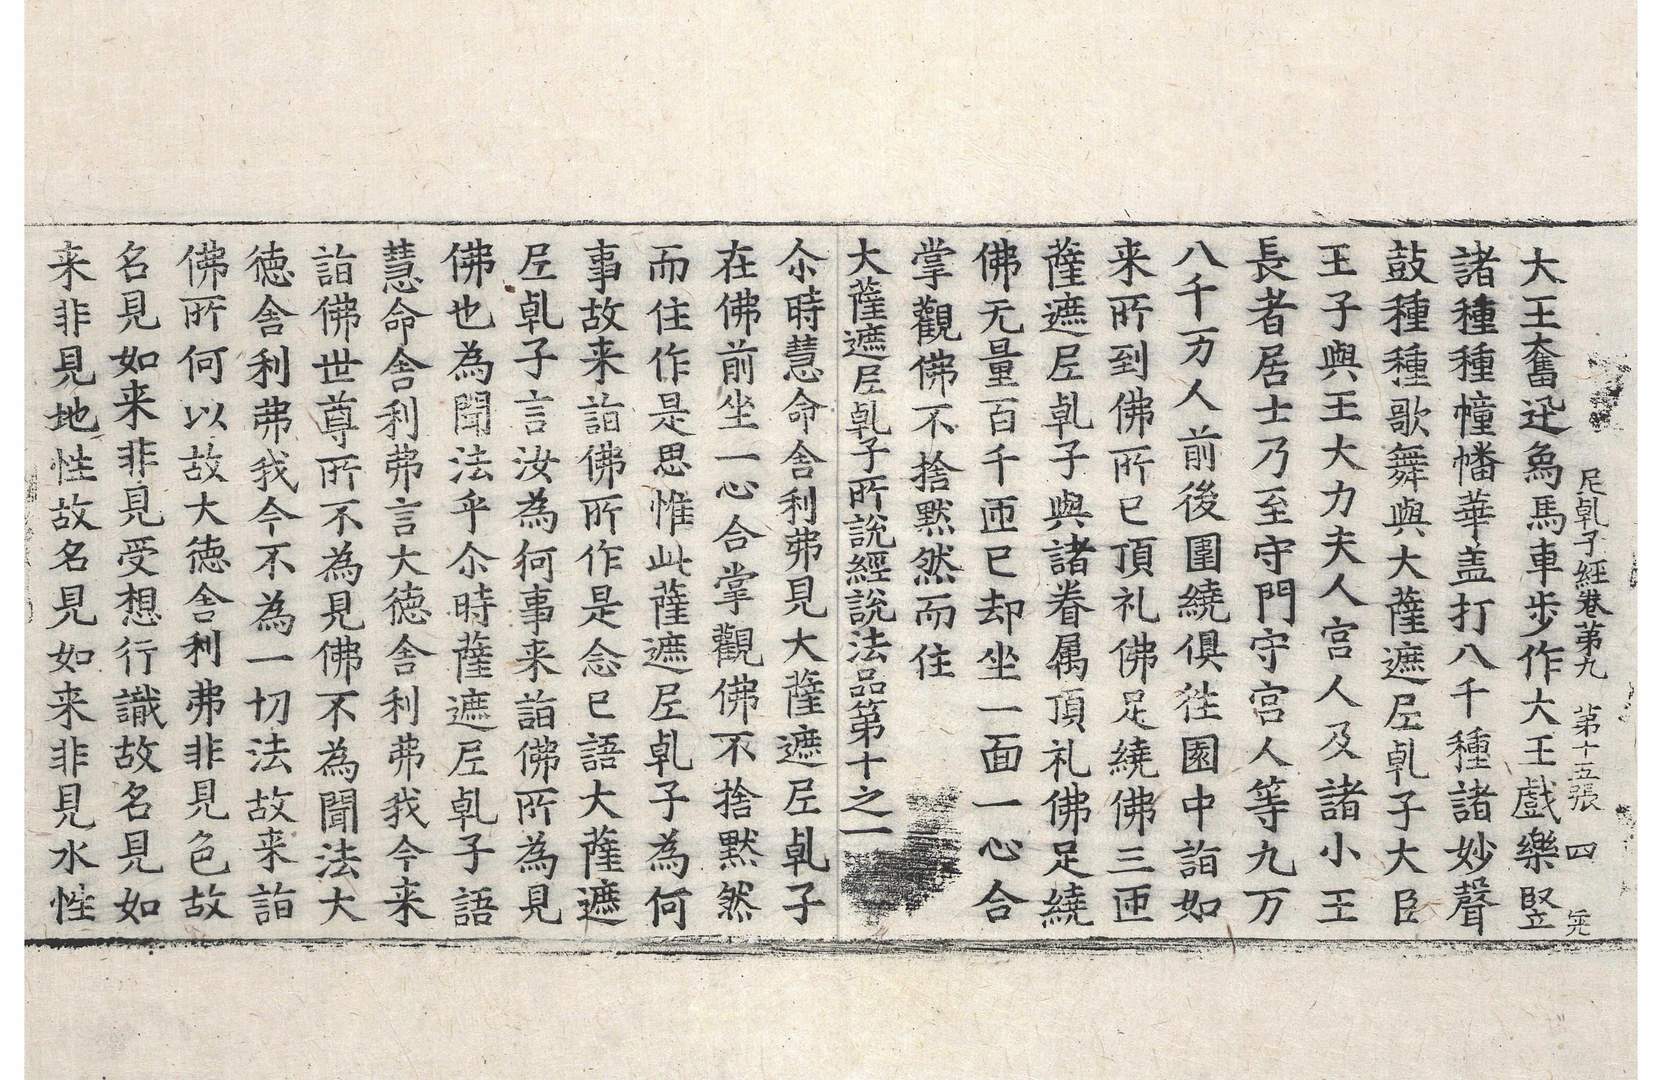 尼乹子経卷第九 第十五張 四
大王奮迅象馬車步作大王戲樂竪
諸種種幢幡華盖打八千種諸妙聲
鼓種種歌舞與大薩遮尼乹子大臣
王子與王大力夫人宫人及諸小王
長者居士乃至守門守宫人等九万
八千万人前後圍繞俱徃園中詣如
来所到佛所已頂礼佛足繞佛三匝
薩遮尼乹子與諸眷属頂礼佛足繞
佛无量百千匝已却坐一面一心合
掌觀佛不捨黙然而住
大薩遮尼乹子所說經說法品第十之一
尒時慧命舍利弗見大薩遮尼乹子
在佛前坐一心合掌觀佛不捨黙然
而住作是思惟此薩遮尼乹子為何
事故来詣佛所作是念已語大薩遮
尼乹子言汝為何事来詣佛所為見
佛也為聞法乎尒時薩遮尼乹子語
慧命舍利弗言大徳舍利弗我今来
詣佛世尊所不為見佛不為聞法大
徳舍利弗我今不為一切法故来詣
佛所何以故大徳舍利弗非見色故
名見如来非見受想行識故名見如
来非見地性故名見如来非見水性